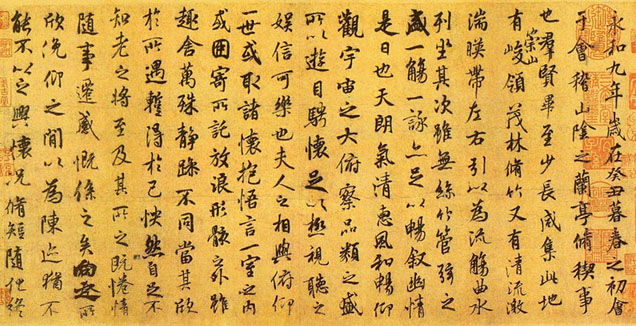 永和九年歲在癸丑暮春之初會
于會稽山陰之蘭亭脩稧事
也羣賢畢至少長咸集此地
有崇山峻領茂林脩竹又有清流激
湍暎帶左右引以為流觴曲水
列坐其次雖無絲竹管弦之
盛一觴一詠亦足以暢敘幽情
是日也天朗氣清惠風和暢仰
觀宇宙之大俯察品類之盛
所以遊目騁懷足以極視聽之
娛信可樂也夫人之相與俯仰
一世或取諸懷抱悟言一室之內
或因寄所託放浪形骸之外雖
趣舍萬殊靜躁不同當其欣
於所遇蹔得於己怏然自足不
知老之將至及其所之既惓情
隨事遷感慨係之矣向之所
欣俛仰之間以為陳迹猶不
能不以之興懷況脩短隨化終